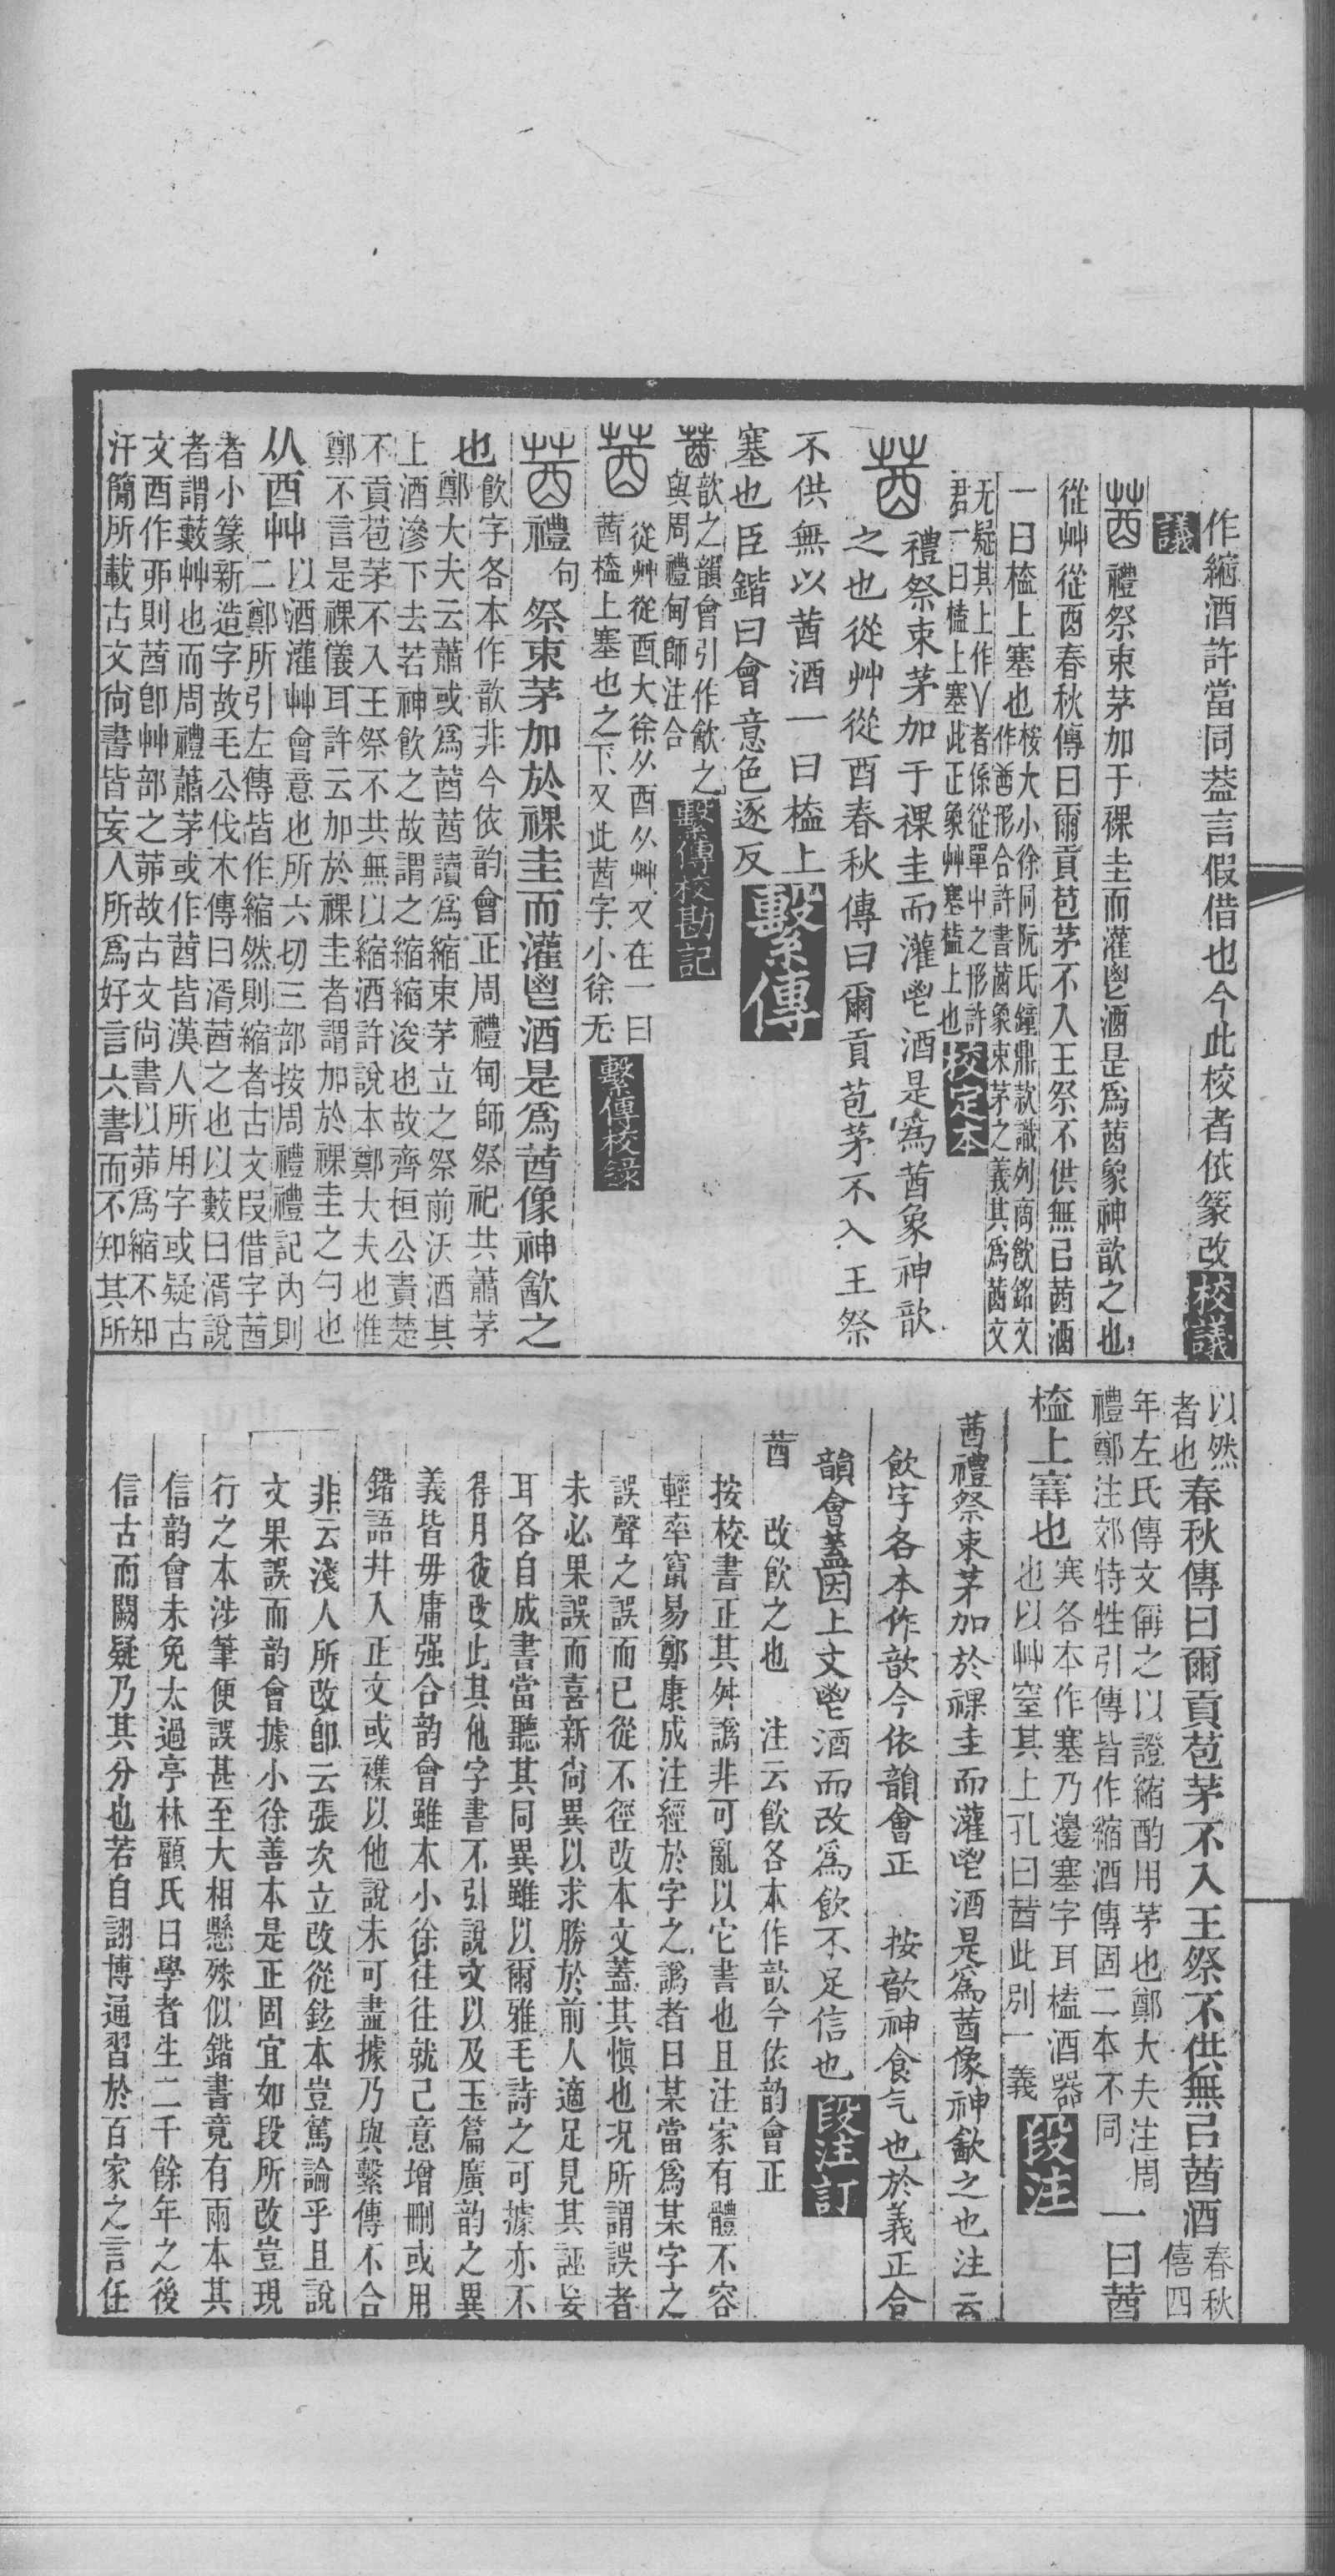 作縮酒許當同葢言假借也今此校者依篆改校議
議
茜禮祭束茅加于祼圭而灌鬯酒是爲茜象神歆之也
從艸從酉春秋傳曰爾貢苞茅不入王祭不供無㠯茜酒
一曰榼上塞也桉大小徐同阮氏鐘鼎款識列商飲銘文
作酋形合許書茜象束茅之義其爲茜文
无疑其上作丫者係從單屮之形許
君一曰榼上塞此正象艸塞榼上也校定本
茜禮祭束茅加于祼圭而灌鬯酒是爲茜象神歆
之也從艸從酉春秋傳曰爾貢苞茅不入王祭
不供無以茜酒一曰榼上
塞也臣鍇曰會意色逐反繫傳
茜歆之韻會引作歃之
與周禮甸師注合繫傳校勘記
茜從艸從酉大徐从酉从艸又在一曰
茜榼上塞也之下又此茜字小徐无繫傳校録
茜禮句祭束茅加於祼圭而灌鬯酒是爲茜像神歃之
也飲字各本作歆非今依韵會正周禮甸師祭祀共蕭茅
鄭大夫云蕭或爲茜茜讀爲縮束茅立之祭前沃酒其
上酒滲下去若神飲之故謂之縮縮浚也故齊桓公責楚
不貢苞茅不入王祭不共無以縮酒許說本鄭大夫也惟
鄭不言是祼儀耳許云加於祼圭者謂加於祼圭之勺也
从酉艸以酒灌艸會意也所六切三部按周禮禮記內則
二鄭所引左傳皆作縮然則縮者古文叚借字茜
者小篆新造字故毛公伐木傳曰湑茜之也以藪曰湑說
者謂藪艸也而周禮蕭茅或作茜皆漢人所用字或疑古
文酉作丣則茜卽艸部之茆故古文尙書以茆爲縮不知
汗簡所載古文尙書皆妄人所爲好言六書而不知其所
以然
者也春秋傳曰爾貢苞茅不入王祭不供無㠯茜酒春秋
僖四
年左氏傳文偁之以證縮酌用茅也鄭大夫注周
禮鄭注郊特牲引傳皆作縮酒傳固二本不同一曰茜
榼上𡫳也𡫳各本作塞乃邊塞字耳榼酒器
也以艸窒其上孔曰茜此別一義段注
茜禮祭束茅加於祼圭而灌鬯酒是爲茜像神歃之也注云
飲字各本作歆今依韻會正 按歆神食气也於義正合
韻會蓋因上文鬯酒而改爲飲不足信也段注訂
茜 改飲之也 注云飲各本作歆今依韵會正
按校書正其舛譌非可亂以它書也且注家有體不容
輕率竄易鄭康成注經於字之譌者曰某當爲某字之
誤聲之誤而已從不徑改本文蓋其愼也況所謂誤者
未必果誤而喜新尙異以求勝於前人適足見其誣妄
耳各自成書當聽其同異雖以爾雅毛詩之可據亦不
得用彼改此其他字書不引說文以及玉篇廣韵之異
義皆毋庸强合韵會雖本小徐往往就己意增刪或用
鍇語幷入正文或襍以他說未可盡據乃與繫傳不合
非云淺人所改卽云張次立改從鉉本豈篤論乎且說
文果誤而韵會據小徐善本是正固宜如段所改豈現
行之本涉筆便誤甚至大相懸殊似鍇書竟有兩本其
信韵會未免太過亭林顧氏曰學者生二千餘年之後
信古而闕疑乃其分也若自詡博通習於百家之言任